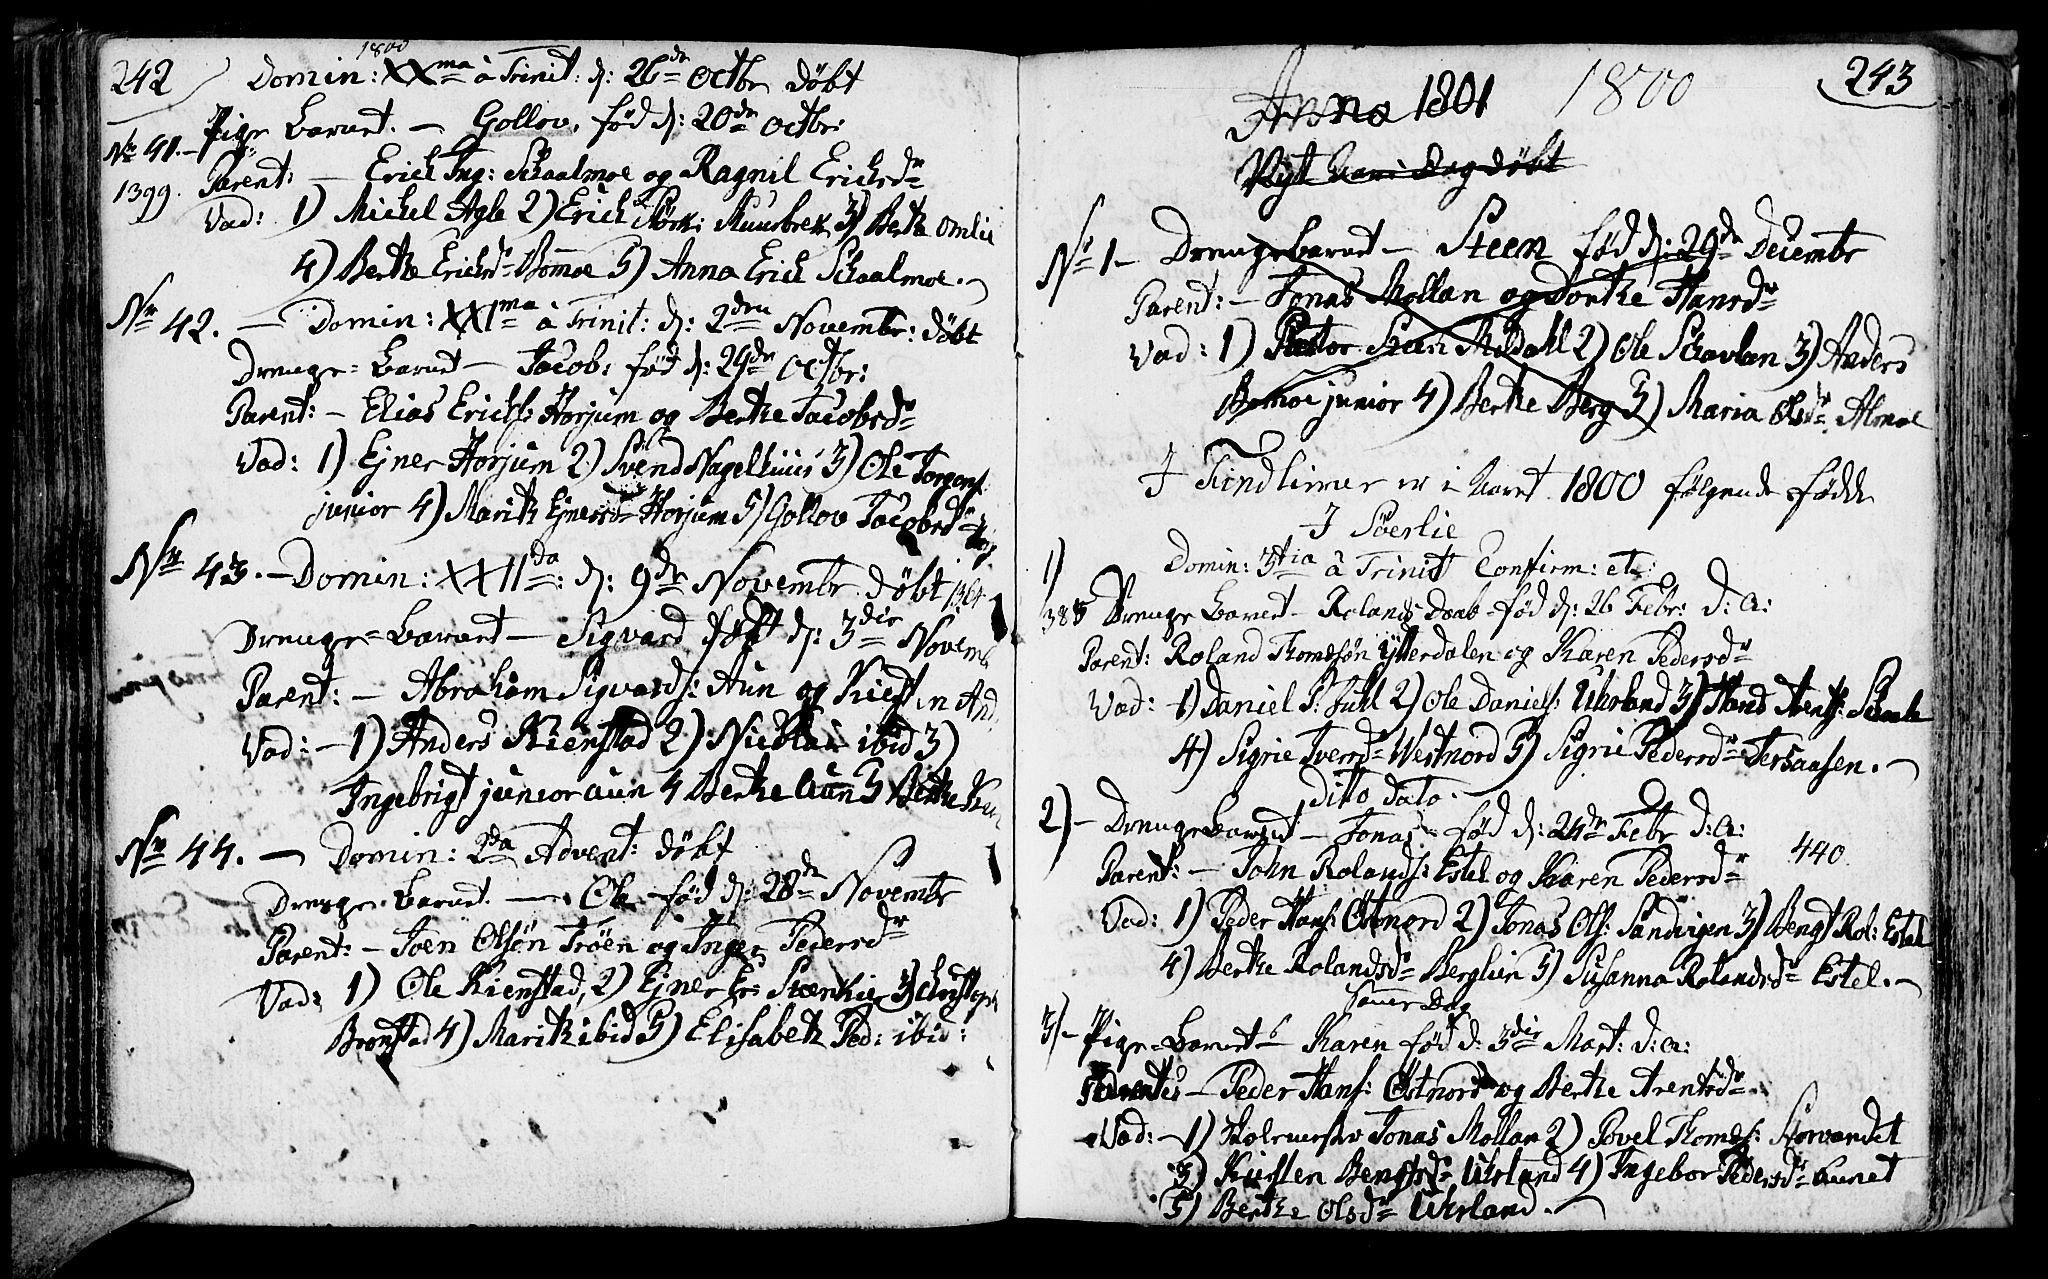 242
1800
Domin: XXma à Trinit: d: 26de Octbr døbt
No 41. – Pige Barnet. – Gollov, fød d: 20de Octbr:
1399. Parent: – Erich Ing: Skaalmoe og Ragnil Ericksdr
Vad: 1) Mickel Agle 2) Erick Muusbrek 3) Berte Omlie
4) Berthe Ericksdr Bomoe 5) Anna Erick Skaalmoe. –
Nr 42. – Domin: XXIma à Trinit: d: 2den Novembr: døbt
Drenge-Barnet – Jacob: fød d: 29de Octbr:
Parent: – Elias Ericks: Horjum og Berthe Jacobsdr
Vad: 1) Ejner Horjum 2) Svend Nagelhuus 3) Ole Torgers:
junior 4) Marith Ejnersdr Horjum 5) Gollov Jacobsdr
Nr 43. – Domin: XXIIda: d: 9de Novembr døbt
Drenge-Barnet – Sigvard født d: 3die Novemb
Parent: – Abraham Sigvards: Aun og Kirstin And
Vad: – 1) Anders Kienstad 2) Nicolai ibid 3)
Ingebrigt junior Aun 4 Berthe Aun 5 Berthe
Nr 44. – Domin: 2da Advent: døbt
Drenge-Barnet. – Ole fød d: 28de Novembr
Parent: – Joen Olsøn Trøen og Inger Pedersdr
Vad: 1) Ole Kienstad, 2) Ejner Er: Stenkier 3) Christoph
Brønstad 4) Marith ibid 5) Elisabeth Ped: ibid:
243
Anno 1801 1800
Nyt Aars Dag døbt
No 1 – Drengebarnet – Steen fød d: 29de Decembr
Parent: – Jonas Mollan og Dorthe Hansdr
Vad: 1) Pastor Steen Mildahl 2) Ole Skavlan 3) Anders
Bomoe junior 4) Berthe Berg 5) Maria Olsdr Almoe
I Findlierne er i Aaret 1800 følgende fødde
I Sørlie
1) Domin: 3tia à Trinit Confirm: et:
388 Drenge Barnet – Roland Daab fød d: 26 Febr: d: a:
Parent: Roland Thomesøn Ytterdalen og Karen Pedersdr
Vad: 1) Daniel P: Juhl 2) Ole Daniels: Uhrland 3) Hans Arents:
4) Sigrie Iversdr Westnord 5) Sigrie Pedersdr Tersaasen. –
Dito Dato.
2) – Drenge Barnet – Jonas – fød d: 24de Febr d: a:
440
Parent: – John Rolands: Estel og Karen Pedersdr
Vad: 1) Peder Hans: Østnord 2) Jonas Ols: Sandvigen 3) Bengt Rol: Estel
4) Berthe Rolandsdr Berglien 5) Susanna Rolandsdr Estel. –
Samme Dag
3) – Pige-Barnet – Karen fød d: 3die Mart: d: a:
Parentes – Peder Hans: Østnord og Berthe Arentsdr
Vad: – 1) Jonas Mollan 2) Povel Thomes: Storvandet
3) Kirsten Bengtsdr Uhrland 4) Ingebor Pedersdr Aunet
5) Berthe Olsdr Uhrland. –